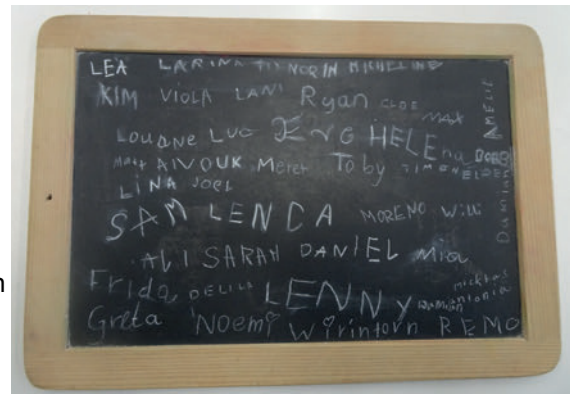 LEA LARINA TIM NORIN MICHELINE
KIM VIOLA LANI Ryan CLOE
MAX
AMELIE
LOUANE LUC HELEna
ANOUK Meret Toby SIMON
LINA JOEL
SAM LENCA MORENO Willi
Damian
ALI SARAH DANIEL Mia
Frida DELILA LENNY
antonia
Greta Noemi Wirintorn REMO
n